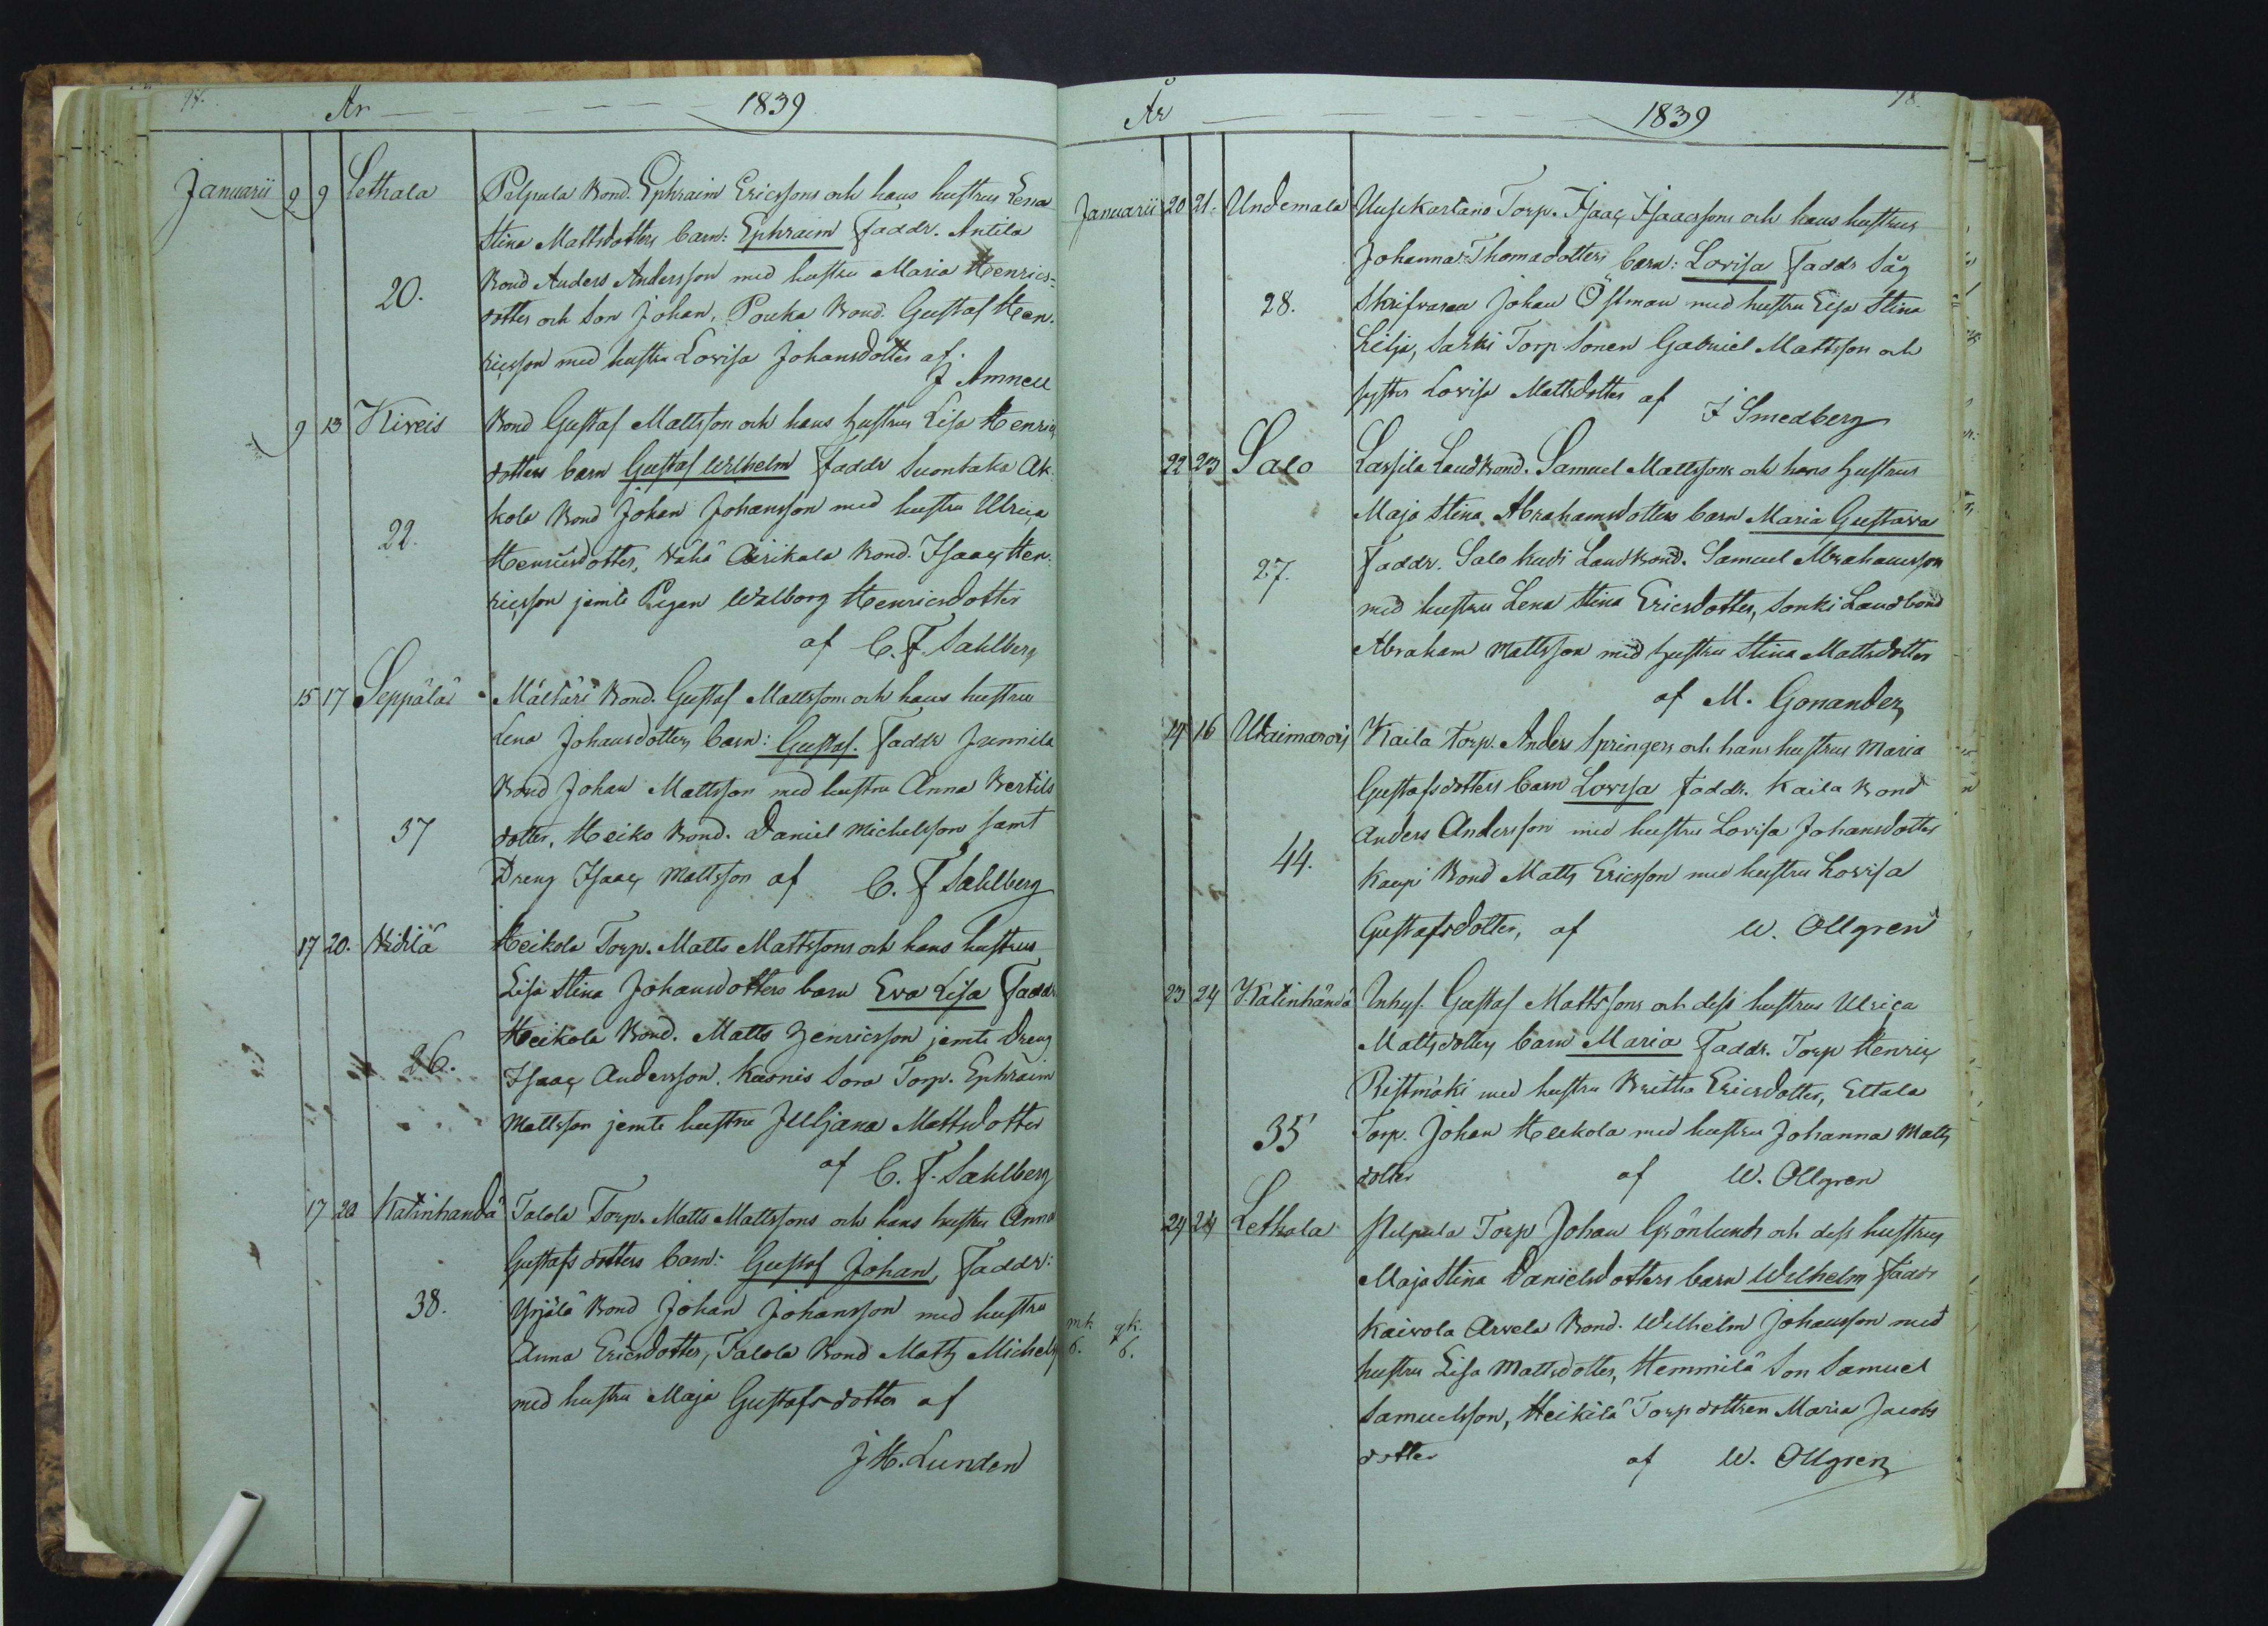 År 1839
Januarii 9 9 Lethala Pelpula Bond. Ephraim Ericssons och hans hustrus Lena
Stina Mattsdotters barn: Ephraim Faddr. Antila
20. Bond Anders Andersson med hustru Maria Henrics-
dotter och Son Johan, Pouka Bond. Gustaf Hen-
ricsson med hustru Lovisa Johansdotter af
J Amnell
9 13 Kiveis Bond Gustaf Mattsson och hans hustrus Lisa Henrics
dotters barn Gustaf Wilhelm Faddr Suontaka Ak-
kola Bond Johan Johansson med hustru Ulrica
22. Henricsdotter, Vähä Äirikala Bond. Isaac Hen-
ricsson jemte Pigan Walborg Henricsdotter
af C. F. Sahlberg
15 17 Seppälä Mältäri Bond. Gustaf Mattssons och hans hustrus
Lena Johansdotters barn: Gustaf. Faddr Junnila
Bond Johan Mattsson med hustru Anna Bertils
37 dotter, Heiko Bond. Daniel Michelsson samt
Dreng Isaac Mattsson af C. F Sahlberg
17 20. Heikola Torp. Matts Mattssons och hans hustrus
Lisa Stina Johansdotters barn Eva Lisa Faddr
Heikola Bond. Matts Henricsson jemte Dreng
26. Isaac Andersson, Kaonis Sora Torp. Ephraim
Mattsson jemte hustru Julljana Mattsdotter
af C. F. Sahlberg
17 20 Katinhändä Talola Torp. Matts Mattssons och hans hustru Anna
Gustafs dotters barn: Gustaf Johan, Faddr:
38. Yrjälä Bond Johan Johansson med hustru
Anna Ericsdotter, Talola Bond Matts Michels
med hustru Maja Gustafsdotter af
J H. Lunden
År 1839
78.
Januarii 20 21. Undemala Uusikartano Torp. Isaac Isaacssons och hans hustrus
Johanna Thomadotters barn: Lovisa Faddr Såg
28. Skrifvaren Johan Östman med hustru Elsa Stina
Lilja, Sarki Torp Sonen Gabriel Mattsson och
syster Lovisa Mattsdotter af J Smedberg
22 23 Salo Lassila Landbond. Samuel Mattssons och hans hustrus
Maja Stina Abrahamsdotters barn Maria Gustava
27. Faddr. Salo Kudi Landbond. Samuel Abrahamsson
med hustru Lena Stina Ericsdotter, Sonki Landbond
Abraham Mattsson med hustru Stina Mattsdotter
af M. Gonander
14 16 Kaila Torp. Anders Springers och hans hustrus Maria
Gustafsdotters barn Lovisa Faddr. Kaila Bond
Anders Andersson med hustru Lovisa Johansdotter
44. Kaupi Bond Matts Ericsson med hustru Lovisa
Gustafsdotter, af W. Ollgren
23 24 Katinhändä Inhys. Gustaf Mattssons och dess hustrus Ulrica
Mattsdotters barn Maria Faddr. Torp Henric
Ristmäki med hustru Britta Ericsdotter, Ettala
35 Torp. Johan Heikola med hustru Johanna Matts
dotter af W. Ollgren
24 24 Lethala Pelpula Torp Johan Grönlunds och dess hustrus
Maja Stina Danielsdotters barn Wilhelm Faddr
mk gk. Kaivola Arvela Bond. Wilhelm Johansson med
6. 6. hustru Lisa Mattsdotter, Hemmilä Son Samuel
Samuelsson, Heikilä Torpdottren Maria Jacobs
dotter af W. Ollgren